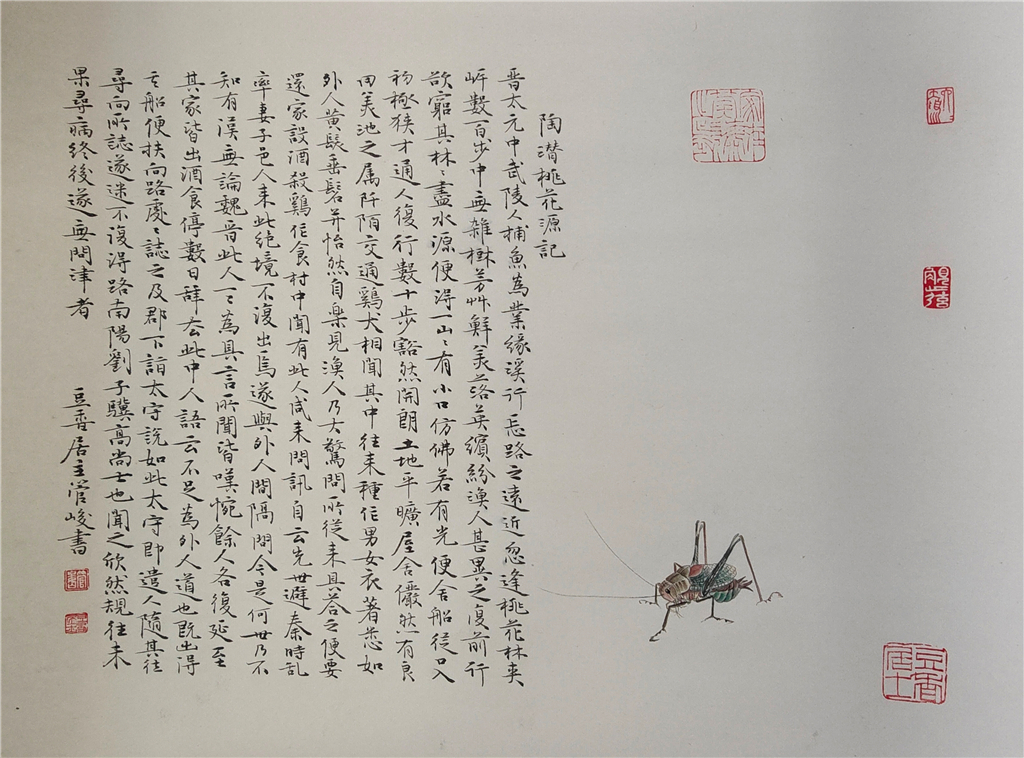 陶潛桃花源記
晉太元中武陵人捕魚為業緣溪行忘路之遠近忽逢桃花林夾
岸數百步中無雜樹芳艸鮮美落英繽紛漁人甚異之復前行
欲窮其林〻盡水源便得一山〻有小口仿佛若有光便舍船從口入
初極狹才通人復行數十步豁然開朗土地平曠屋舍儼然有良
田美池之属阡陌交通鷄犬相聞其中往来種作男女衣著悉如
外人黄髮垂髫并怡然自樂見漁人乃大驚問所從来具荅之便要
還家設酒殺鷄作食村中聞有此人咸来問訊自云先世避秦時乱
率妻子邑人来此絶境不復出焉遂與外人間隔問今是何世乃不
知有漢無論魏晉此人一一為具言所聞皆嘆惋餘人各復延至
其家皆出酒食停數日辞去此中人語云不足為外人道也既出得
其船便扶向路處〻誌之及郡下詣太守說如此太守即遣人隨其往
尋向所誌遂迷不復得路南陽劉子驥高尚士也聞之欣然規往未
果尋病終後遂無問津者 豆香居主管峻書
豆香居士